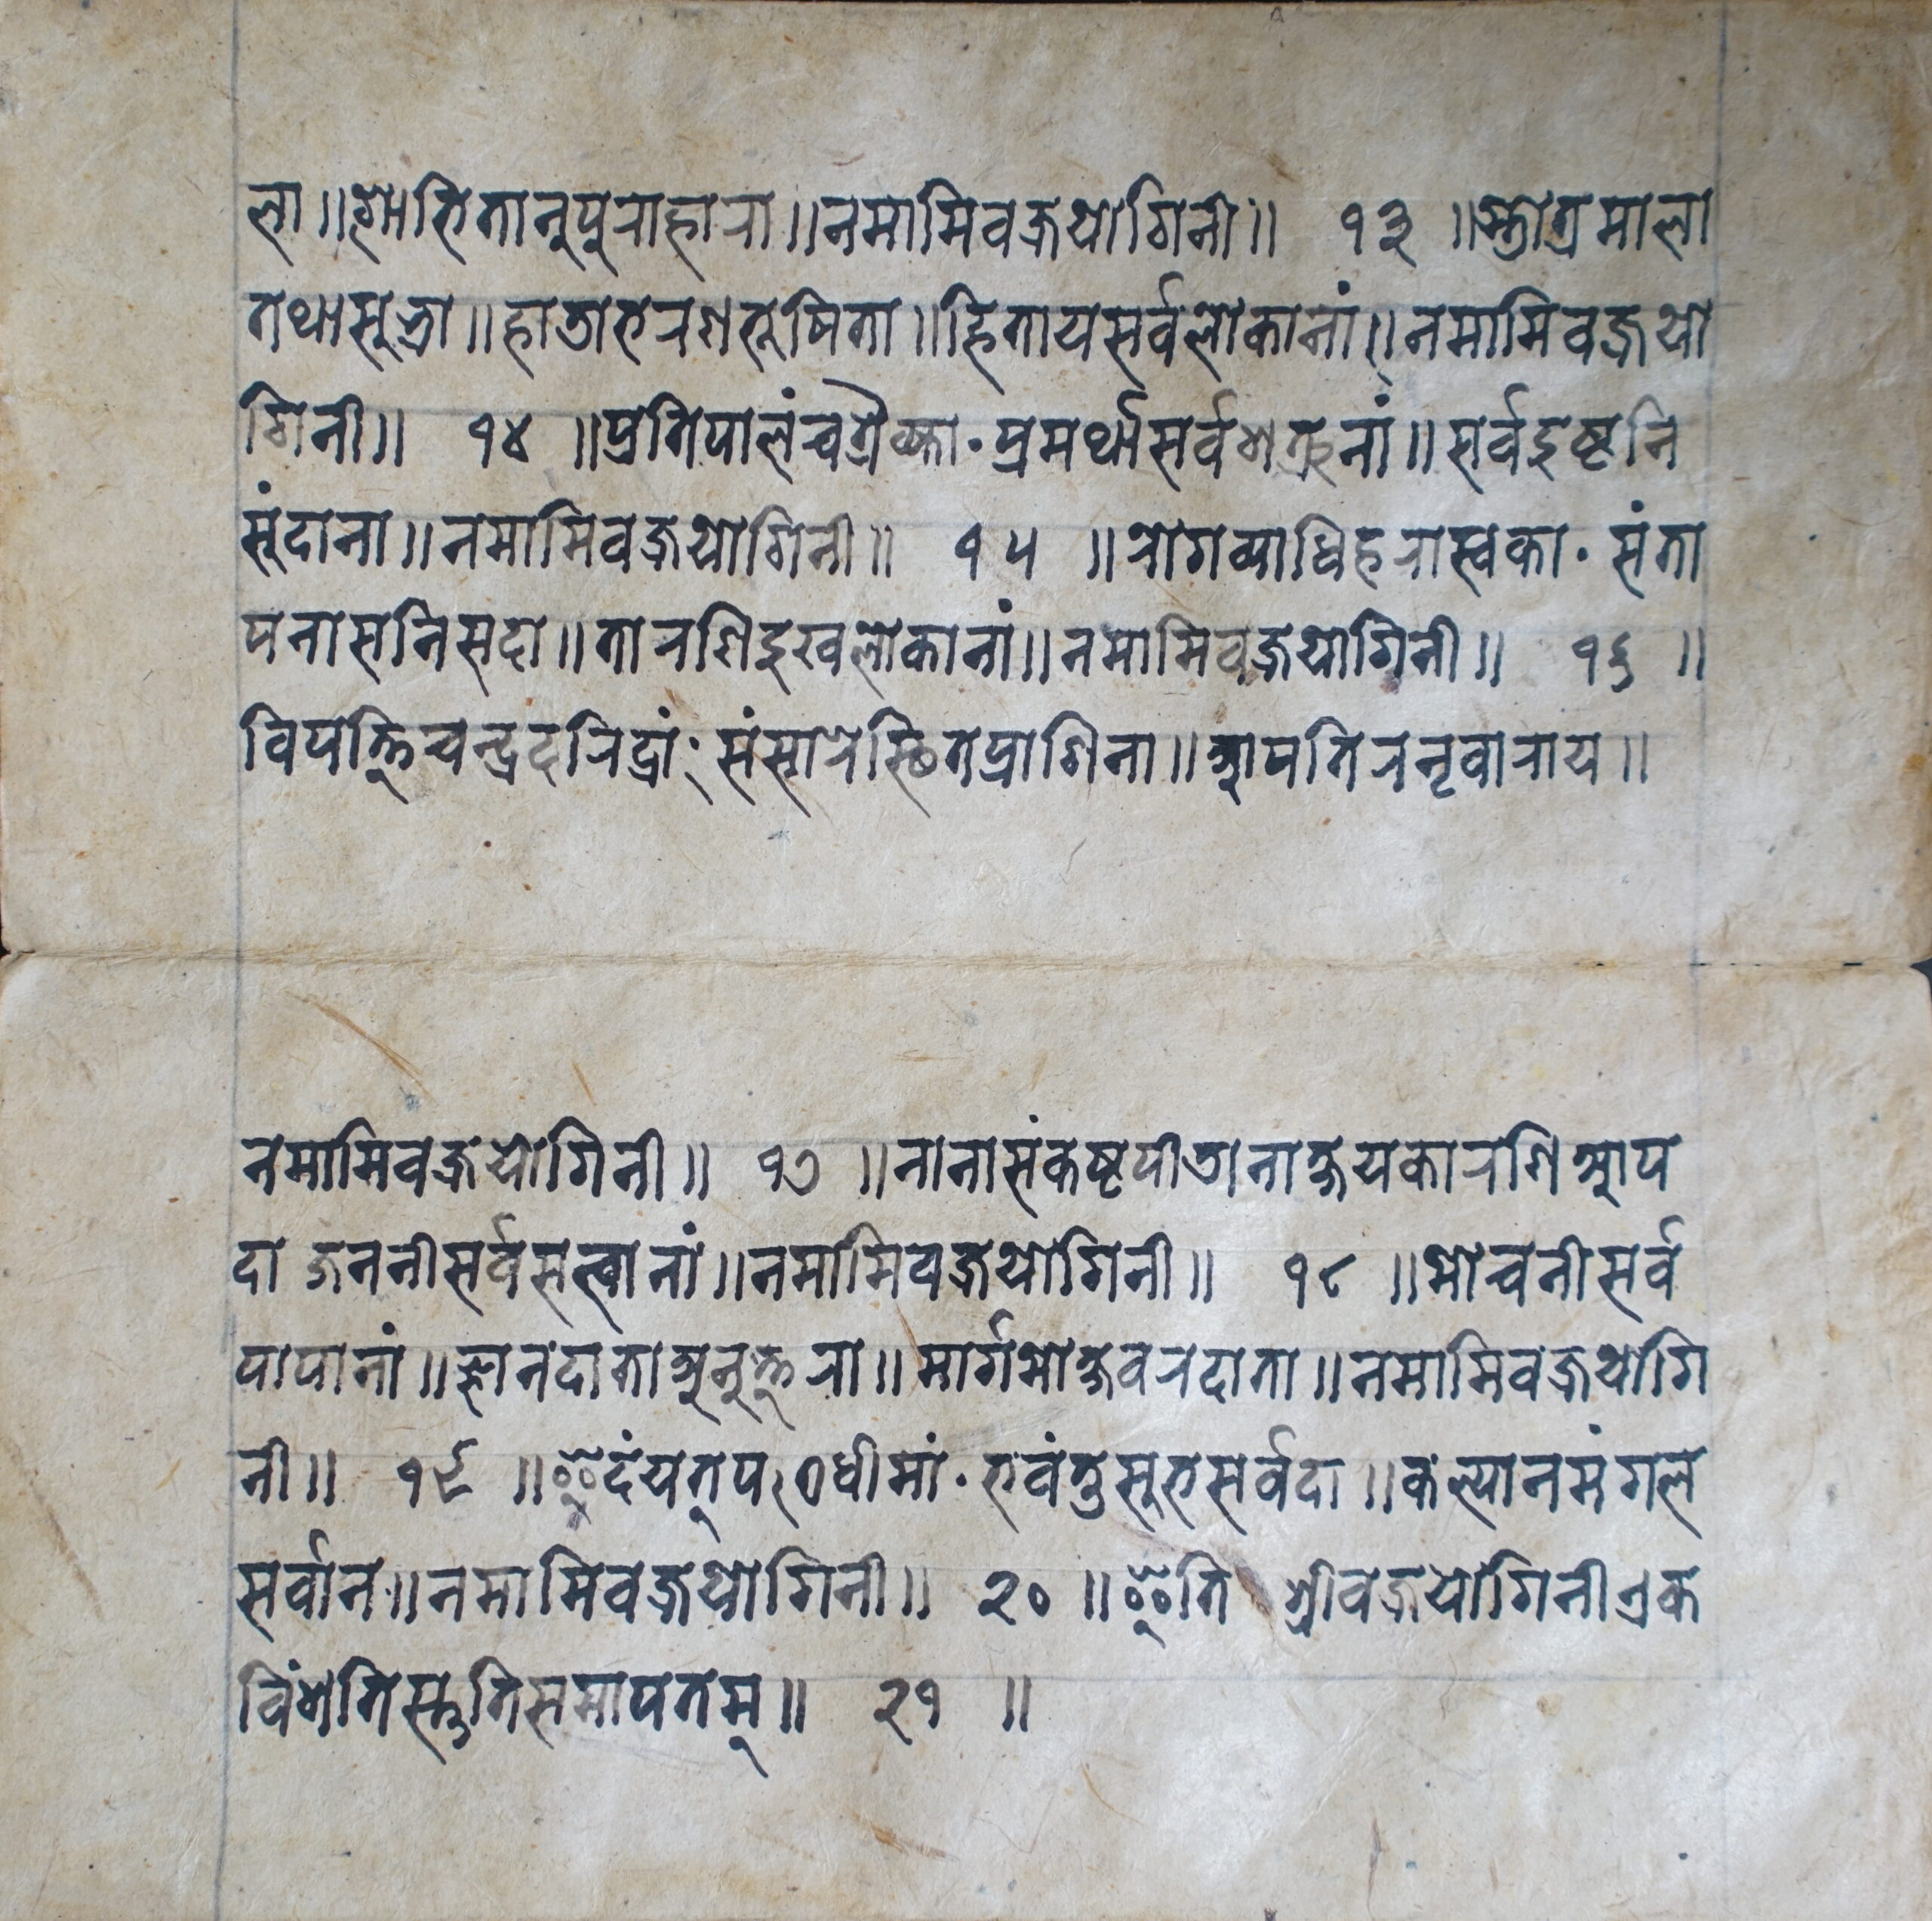 ला॥शोभितानुपुराहारा॥नमामिवज्रयोगिनी॥ १३ ॥स्तोत्रमाला
तथासूत्रा॥हाडाभरणभूषिता॥हितायसर्वलोकानां॥नमामिवज्रयो
गिनी॥ १४ ॥प्रतिपालंचत्रैव्का·प्रमर्थासर्वशत्रुनां॥सर्वदुष्टनि
सुंदाना॥नमामिवज्रयोगिनी॥ १५ ॥रोगव्याधिहरास्वका·संता
पनासनिसदा॥तारणिदुखलोकानां॥नमामिवज्रयोगिनी॥ १६ ॥
विपत्तिचन्द्रदरिद्रां·संसारेस्थितप्राणिना॥आपतिरनृवाराय॥
नमामिवज्रयोगिनी॥ १७ ॥नानासंकष्टपीडानाक्षयकारणिआप
दा जननीसर्वसत्वानां॥नमामिवज्रयोगिनी॥ १८ ॥मोचनीसर्व
पापानां॥ज्ञानदाताअनुत्तरा॥मार्गमोक्षवरदाता॥नमामिवज्रयोगि
नी॥ १९ ॥इदंयत्पठेधीमां·भवंतुसुभसर्वदा॥कल्यानमंगल
सर्वान॥नमामिवज्रयोगिनी॥ २० ॥इति श्रीवज्रयोगिनीएक
विंशतिस्तुतिसमापतम्॥ २१ ॥